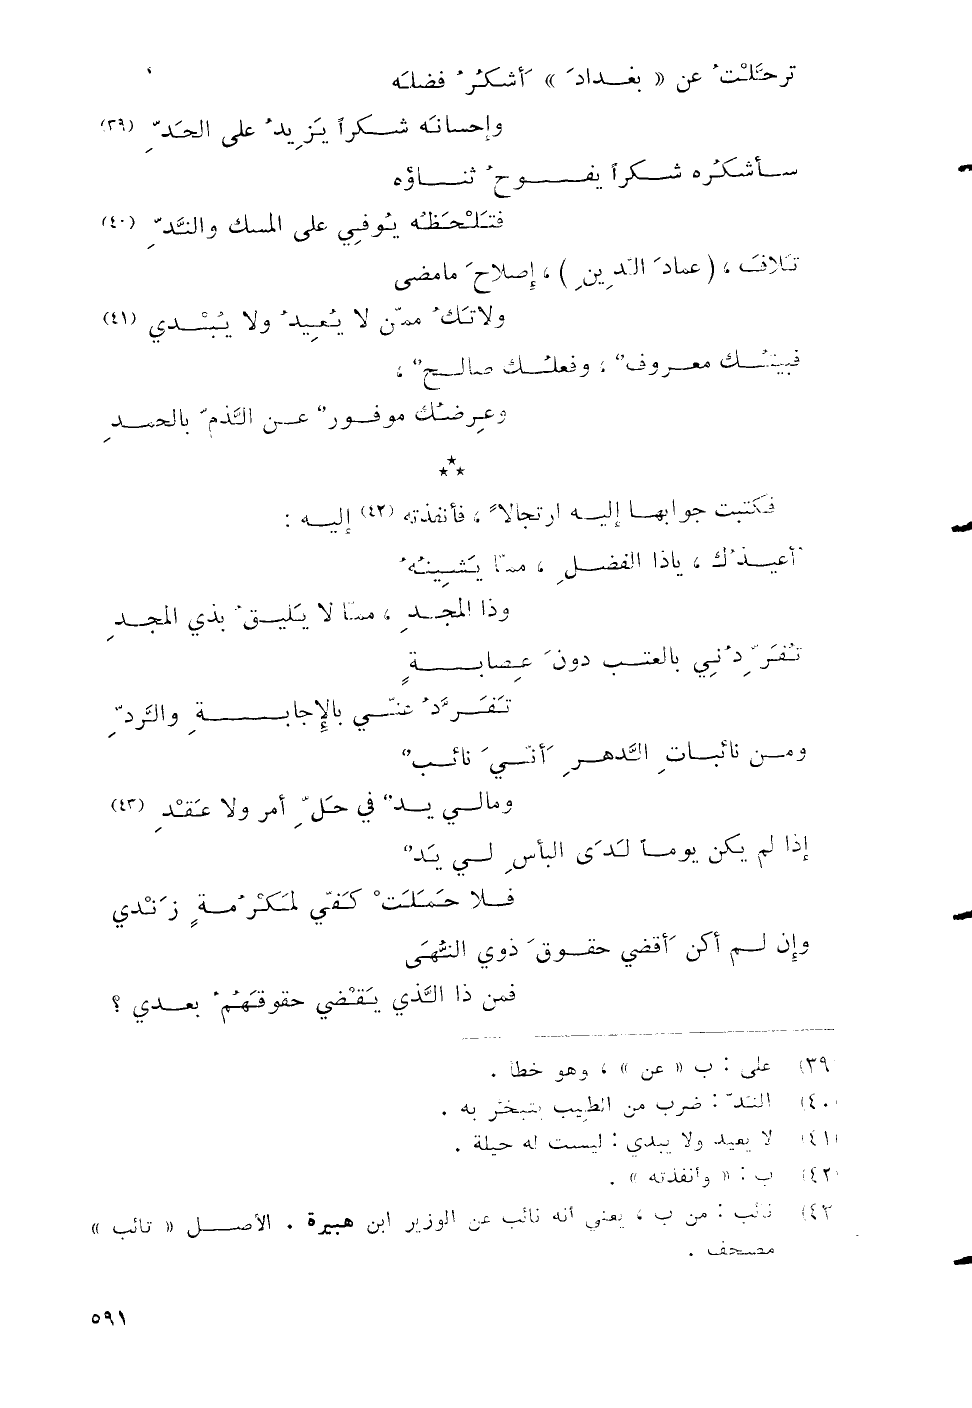 ترحَّلْتُ عن « بغدادَ » أَشكُرُ فضلَه
وإحسانَه شكراً يَزِيدُ على الحَدِّ (٣٩)
سأشكُره شكراً يفوحُ ثناؤه
فتَلْحَظُه يُوفِي على المسك والنَّدِّ (٤٠)
تَلافَ ، (عمادَ الدِينِ) ، إصلاحَ مامضى
ولاتَكُ ممّن لا يُعِيدُ ولا يُبْدي (٤١)
فبيتُك معروفٌ ، وفعلُك صالحٌ ،
وعِرضُك موفورٌ عن الذَّمِّ بالحمدِ
***
فكَتبت جوابها إليه ارتجالاً ، فأنفذته (٤٢) إليه :
أُعيذُك ، ياذا الفضلِ ، ممّا يَشِينُهُ
وذا المجدِ ، ممّا لا يَليقُ بذي المجدِ
تُفَرِّدُنِي بالعتب دونَ عِصابةٍ
تَفَرَّدُ عنّي بالإِجابةِ والرَّدِّ
ومن نائباتِ الدَّهرِ أَنّيَ نائبٌ
ومالي يدٌ في حَلِّ أمر ولا عَقْدِ (٤٣)
إذا لم يكن يوماً لَدَى البأسِ لي يَدٌ
فلا حَمَلَتْ كَفّي لمَكْرُمةٍ زَنْدي
وإن لم أكن أَقضي حقوقَ ذوي النُّهَى
فمن ذا الَّذي يَقْضي حقوقَهُمُ بعدي ؟
٣٩) على : ب « عن » ، وهو خطأ .
(٤٠) النَدّ : ضرب من الطِيب يتبخَّر به .
(٤١) لا يعيد ولا يبدي : ليست له حيلة .
(٤٢) ب : « وأنفذته » .
(٤٣) نائب : من ب ، يعني أنه نائب عن الوزير ابن هبيرة . الأصل « تائب »
مصحف .
٥٩١